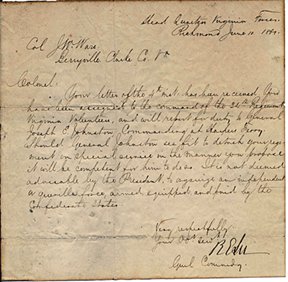 Head Quarters Virginia Forces.
Richmond June 10 1861.
Col J. W. Ware
Berryville Clarke Co. Va
Colonel.
Your letter of the 4th inst. has been received. You
have been assigned to the command of the Regiment
Virginia Volunteers, and will report for duty to General
Joseph E. Johnston, Commanding at Harpers Ferry.
Should General Johnston see fit to detach your regi-
ment on special service in the manner you propose,
it will be competent for him to do so. It is not deemed
advisable by the President to organize an independent
or guerilla force, armed equipped and paid by the
Confederate States.
Very respectfully
Your Obt Servt
R E Lee
Genl Commdg